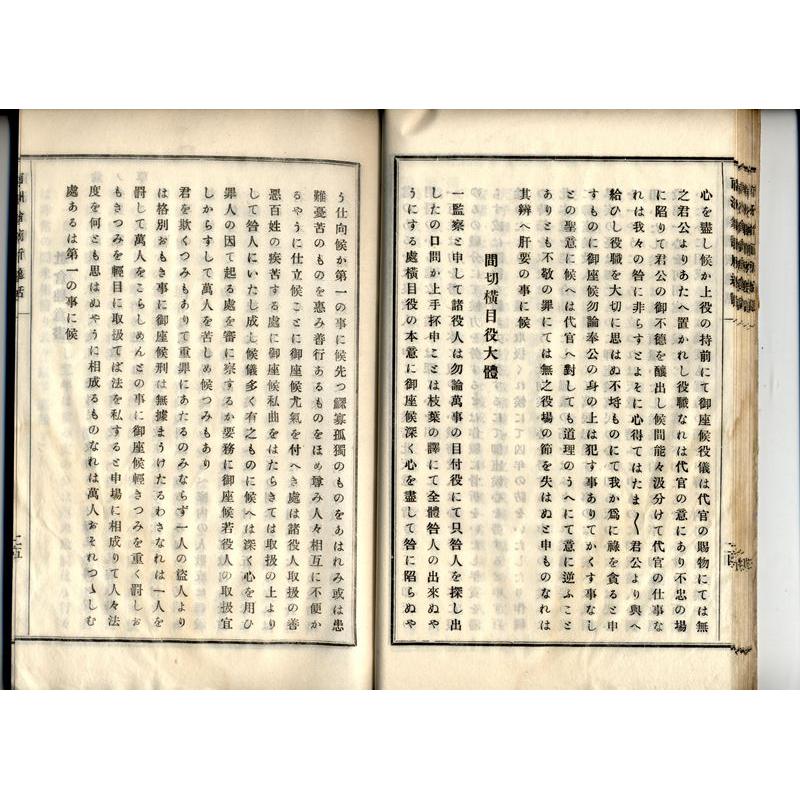 心を盡し候か上役の持前にて御座候役儀は代官の賜物にては無
之君公よりあたへ置かれし役職なれは代官の意にあり不忠の場
に陷りて君公の御不德を釀出し候間能々汲分けて代官の仕事な
れは我々の咎に非らすとよそに心得てはたま〱君公より與へ
給ひし役職を大切に思はぬ不埓ものにて我か爲に祿を貪ると申
すものに御座候勿論奉公の身の上は犯す事ありてかくす事なし
との聖意に候へは代官へ對しても道理のうへにて意に逆ふこと
ありとも不敬の罪にては無之役場の節を失はぬと申ものなれは
其辨へ肝要の事に候
間切横目役大體
一監察と申して諸役人は勿論萬事の目付役にて只咎人を探し出
したの口問か上手抔申ことは枝葉の譯にて全體咎人の出來ぬや
うにする處横目役の本意に御座候深く心を盡して咎に陷らぬや
う仕向候か第一の事に候先つ鰥寡孤獨のものをあはれみ或は患
難憂苦のものを惠み善行あるものをほめ尊み人々相互に不便か
るやうに仕立候ことに御座候尤氣を付へき處は諸役人取扱の善
惡百姓の疾苦する處に御座候私曲をはたらきては取扱の上より
して咎人にいたし成し候儀多く有之ものに候へは深く心を用ひ
罪人の因て起る處を審に察するか要務に御座候若役人の取扱宜
しからすして萬人を苦しめ候つみもあり
君を欺くつみもありて重罪にあたるのみならず一人の盜人より
は格別おもき事に御座候刑は無據まうけたるわさなれは一人を
罸して萬人をこらしめんとの事に御座候輕きつみを重く罸しお
もきつみを輕目に取扱てば法を私すると申場に相成りて人々法
度を何とも思はぬやうに相成るものなれは萬人おそれつゝしむ
處あるは第一の事に候
二五